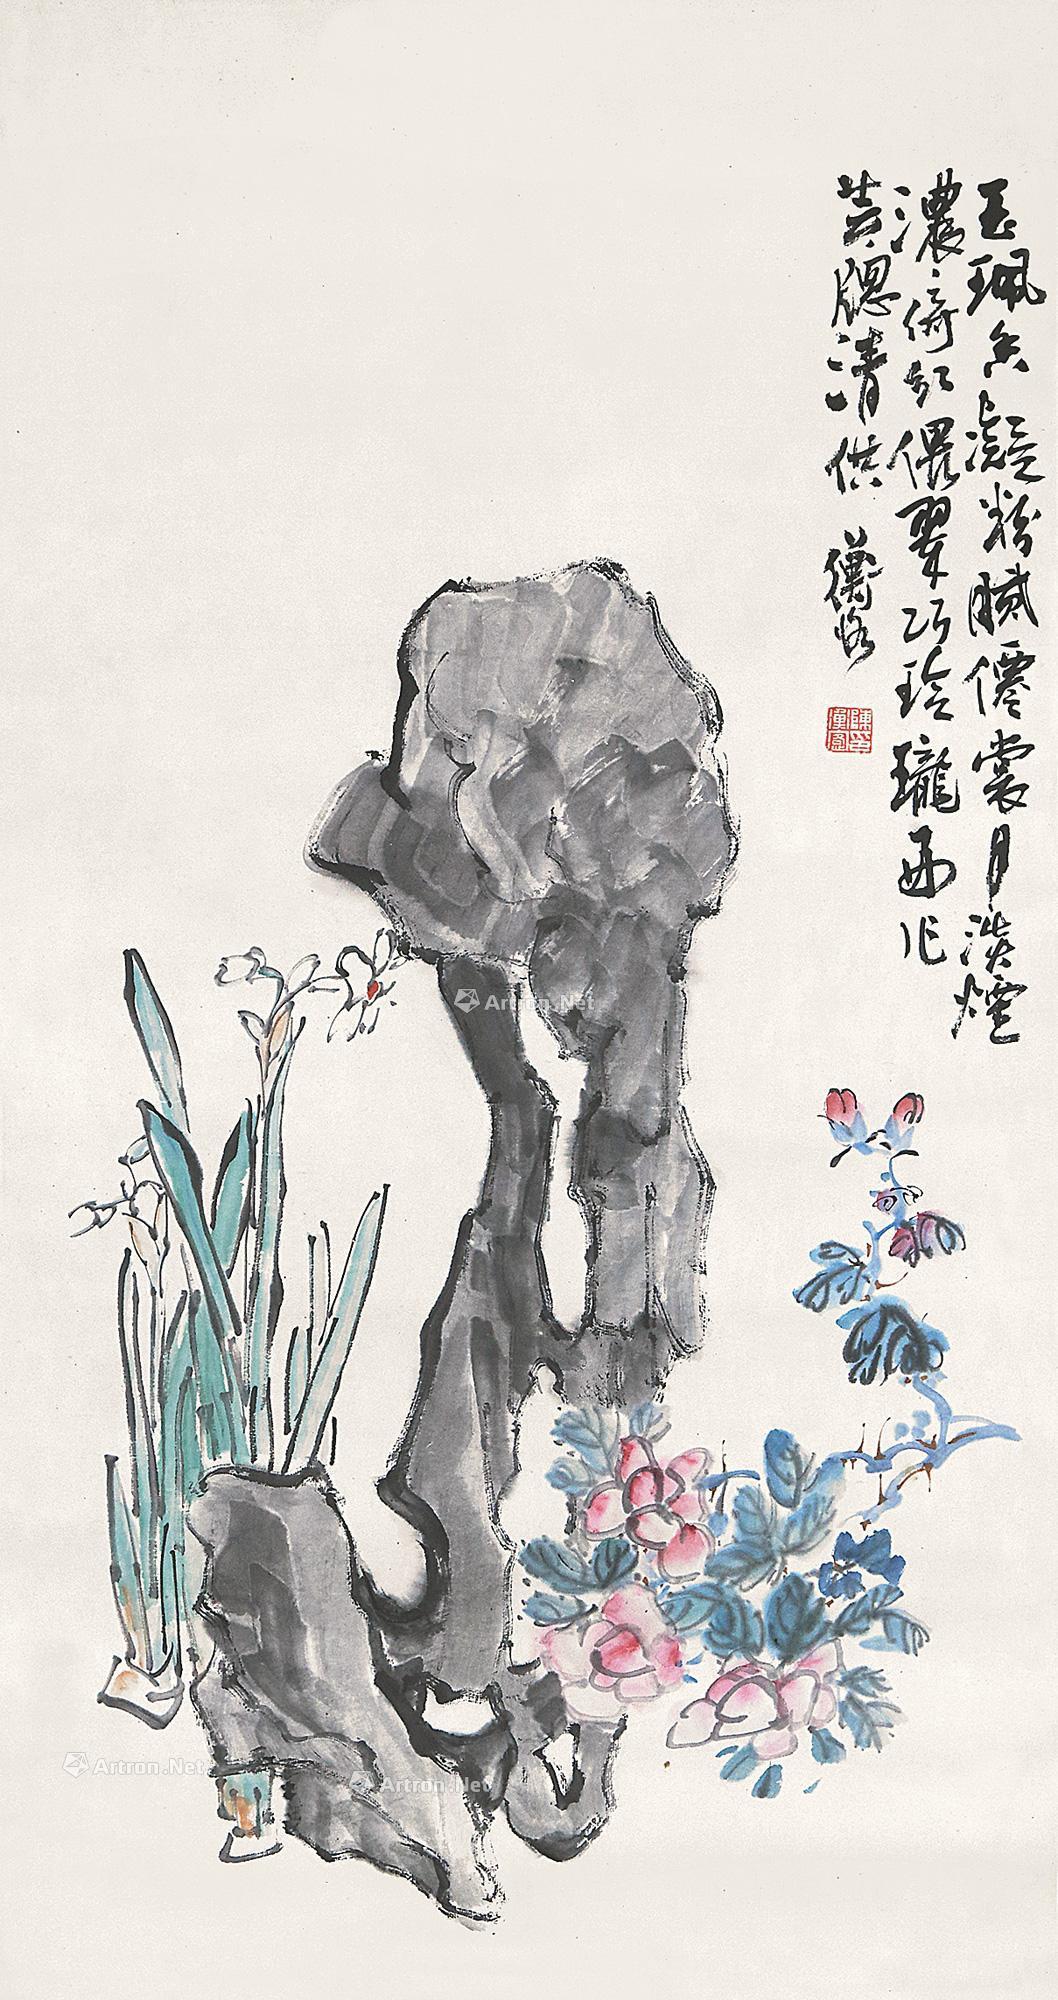 玉珮香凝粉腻僊裳月淡煙
濃〻倚紅偎翠巧玲瓏西作
芸牕清供 衡恪
Artron.Net
Artron.Net
Artron.Net